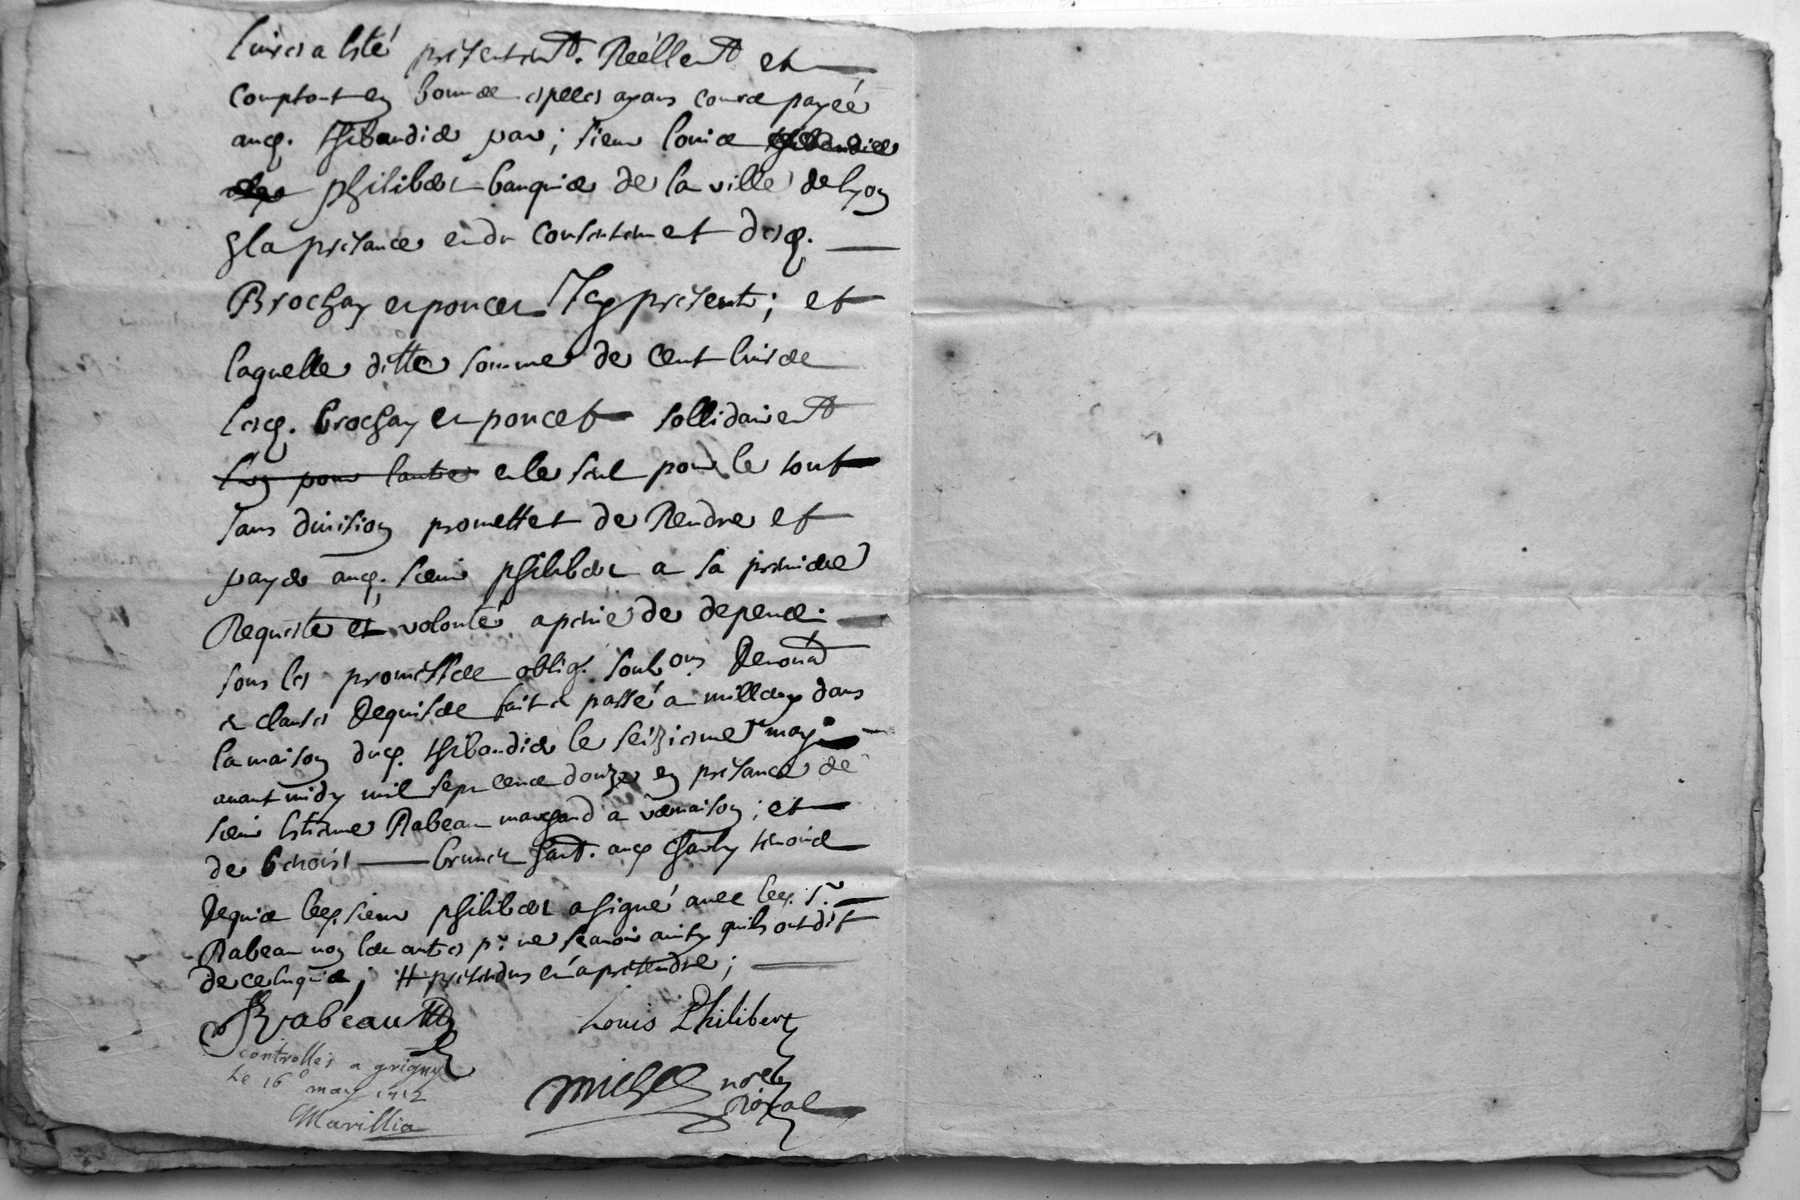 livres a esté présentemt. Réellemt et
comptant en bonnes espèces ayans cours payée
aud. thibaudier par; sieur louis thibaudier
philibert banquier de la ville de lyon
en la présance et du consentement desd.
Brochay et poncet Icy présents; et
laquelle ditte somme de cent livres
lesd. brochay et poncet sollidairemt
lun pour lautre et le seul pour le tout
sans division promettent de Rendre et
payer aud. sieur philibert a sa première
Requeste et volonté a peine de depens.
sous les promesses oblig. soubons Renond
et clauses Requises fait et passé a millery dans
la maison dud. thibaudier le seizieme may
avant midy mil sept cens douze en présance de
sieur estienne Rabeau marchand a vernaison; et
de benoist brunet habt. aud charly témoins
Requis led. sieur philibert a signé avec led. sr.
Rabeau non les autres pr. ne scavoir ainsy quils ont dit
de ce enquis,
Rabeau
Louis Philibert
controllés a grigny
Le 16e may 1712
Marillia
michel nore
Royal